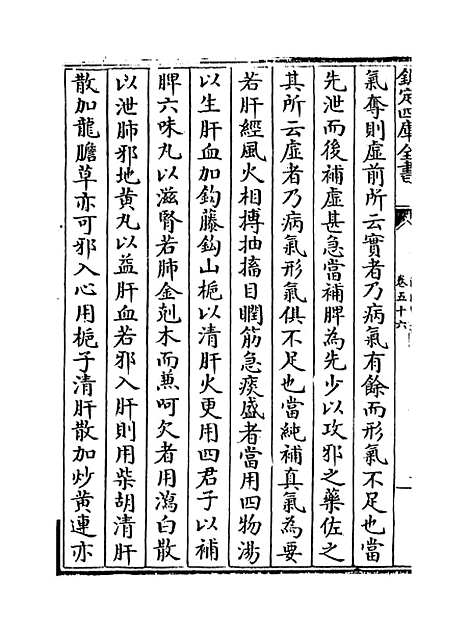 欽定四庫全書
卷五十六
氣奪則虛前所云實者乃病氣有餘而形氣不足也當
先泄而後補虛甚急當補脾為先少以攻邪之藥佐之
其所云虛者乃病氣形氣俱不足也當純補真氣為要
若肝經風火相搏抽搐目瞤筋急痰盛者當用四物湯
以生肝血加鈎藤鈎山梔以清肝火更用四君子以補
脾六味丸以滋腎若肺金剋木而兼呵欠者用瀉白散
以泄肺邪地黄丸以益肝血若邪入肝則用柴胡清肝
散加龍膽草亦可邪入心用梔子清肝散加炒黄連亦